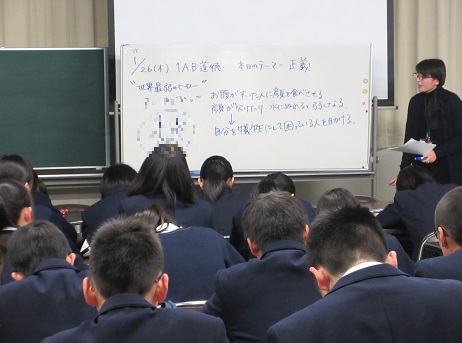 1/26(木) 1AB道徳 本日のテーマ = 正義
"世界最弱のヒーロー"
= お腹がすいた人に顔を食べさせる
顔が欠けたり 水にぬれると弱くなる。
↓
自分を犠牲にして困っている人を助ける。